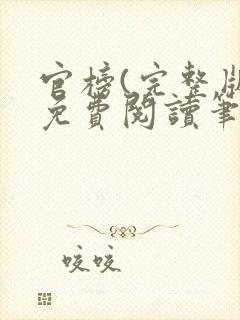 官榜(完整版
免費閱讀筆
咬咬